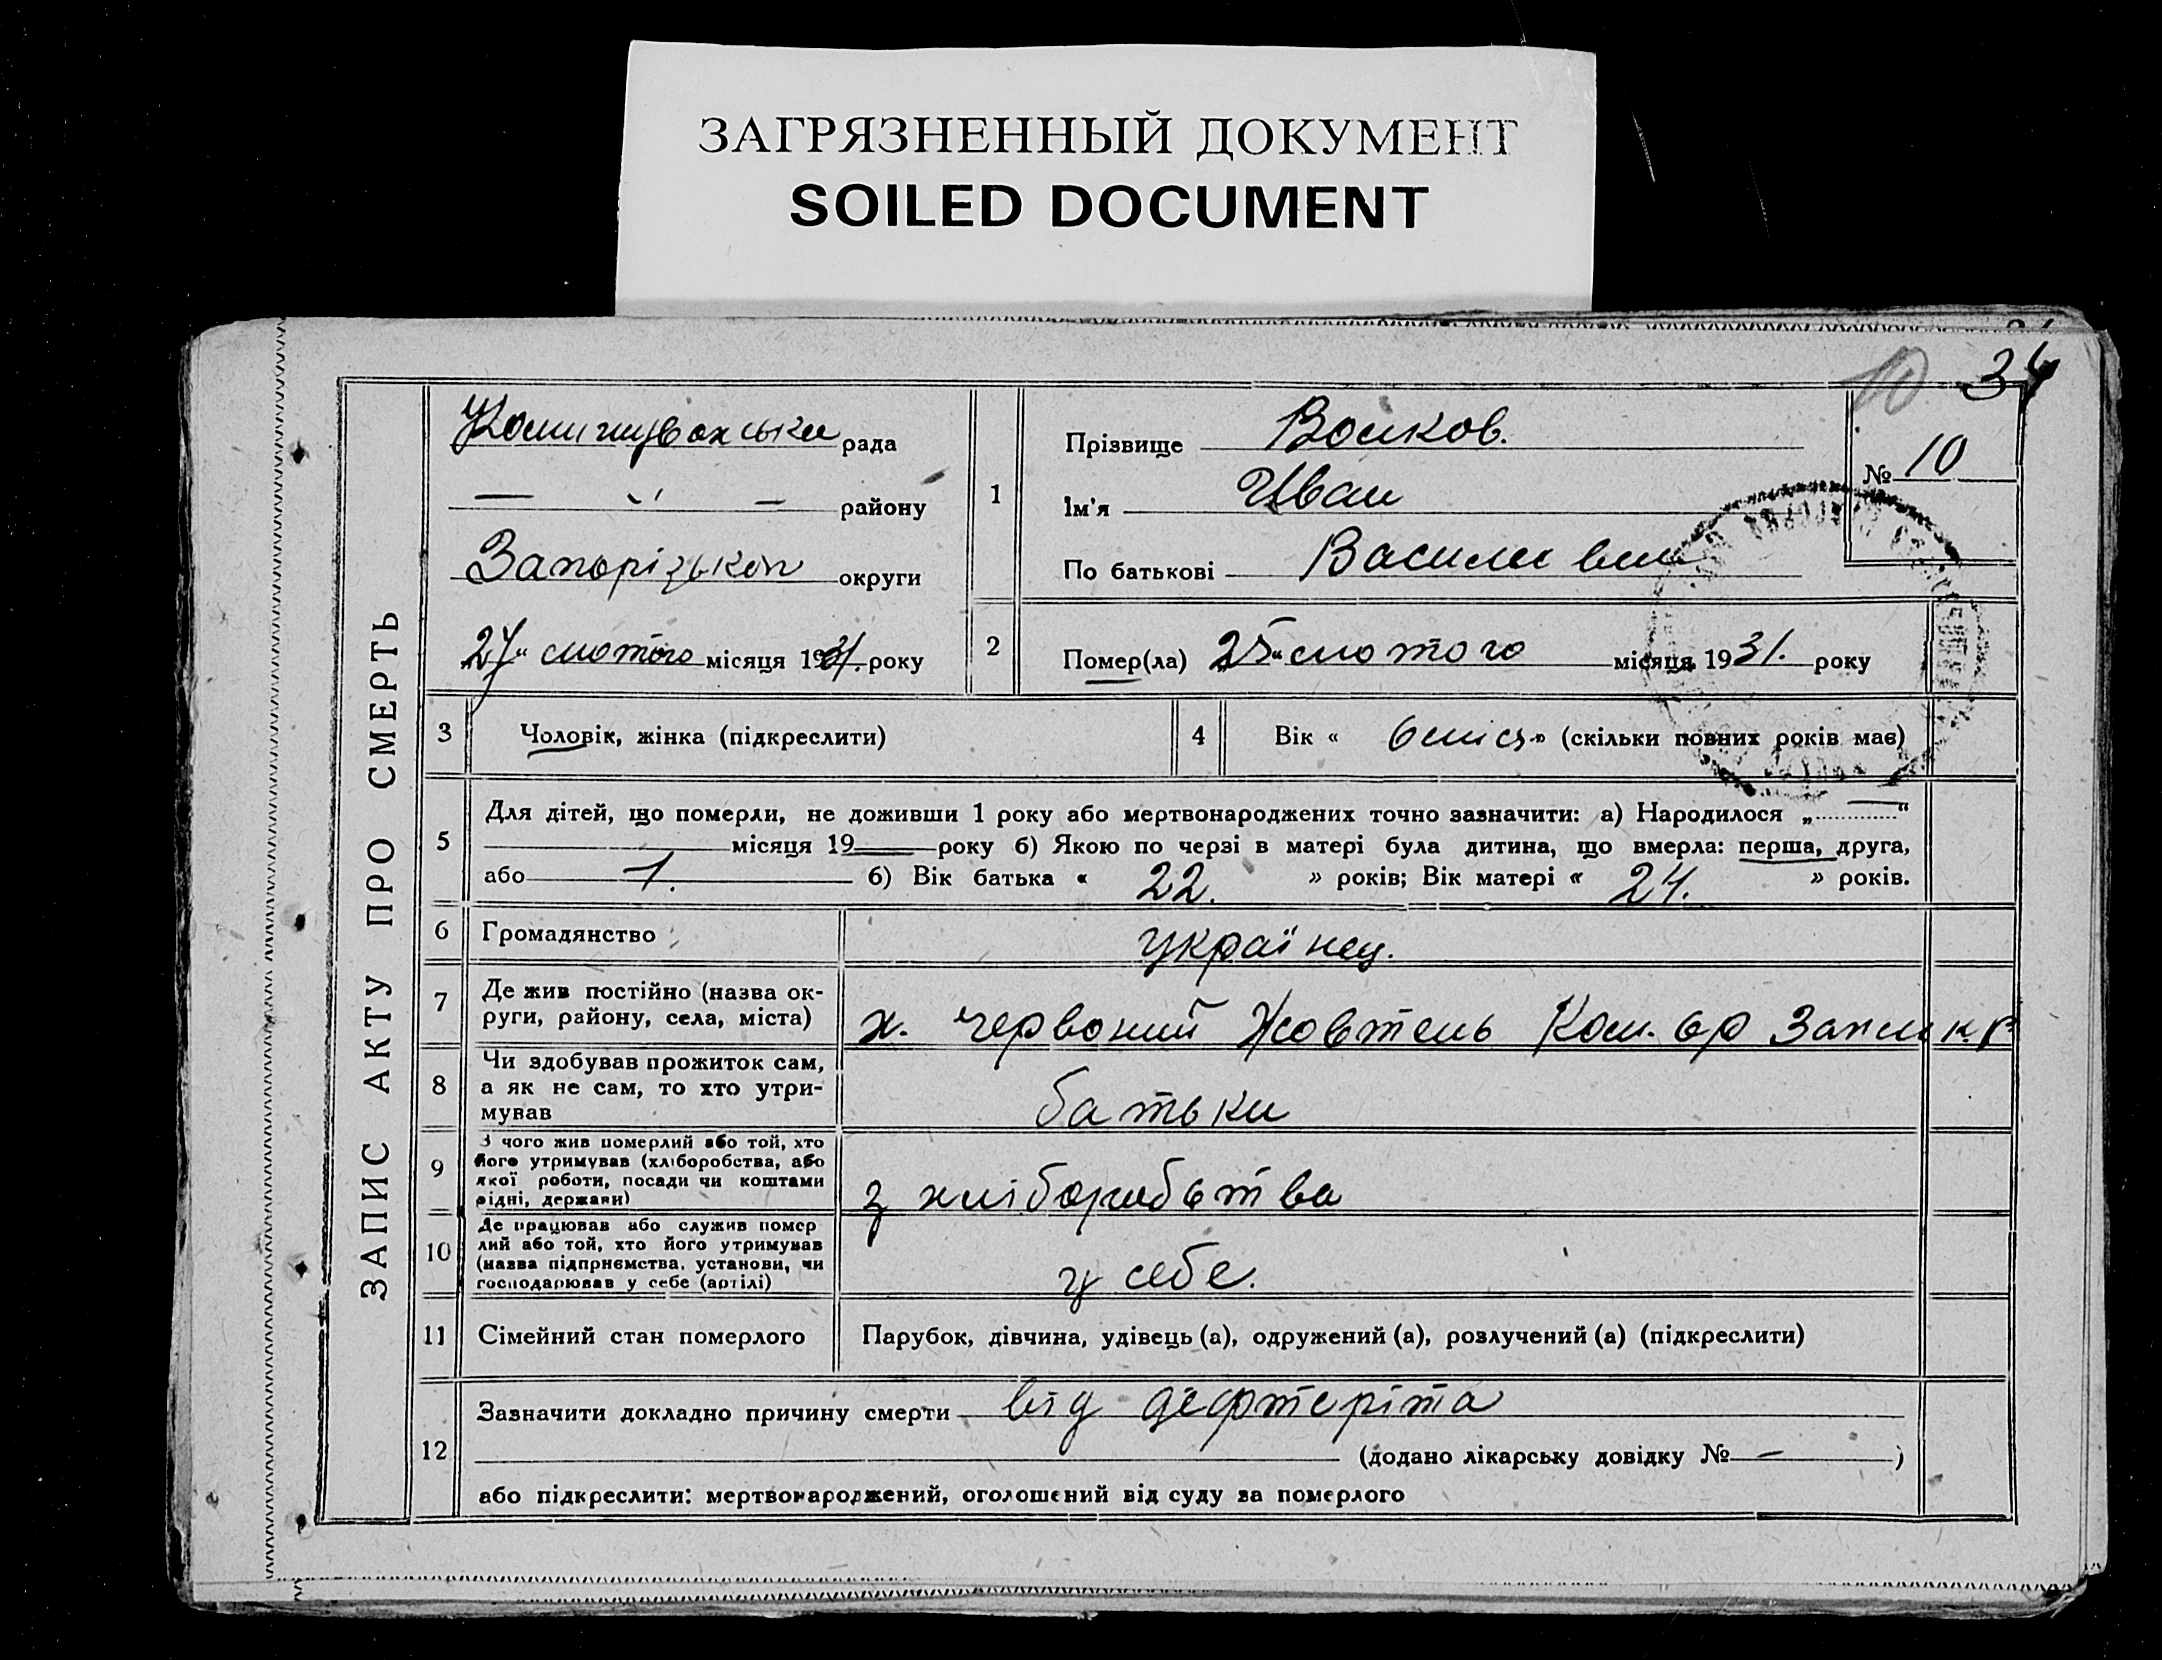 ЗАГРЯЗНЕННЫЙ ДОКУМЕНТ
SOILED DOCUMENT
10 34
ЗАПИС АКТУ ПРО СМЕРТЬ
Комишувахська рада
— " — району
Запорізької округи
27 " лютого місяця 1931. року
1
Прізвище Волков.
Ім'я Иван
По батькові
№ 10
2
Помер(ла) 25 " лютого місяця 1931. року
3 Чоловік, жінка (підкреслити)
4 Вік « 6 міся » (скільки повних років має)
5
Для дітей, що померли, не доживши 1 року або мертвонароджених точно зазначити: а) Народилося „ — “
місяця 19 — року б) Якою по черзі в матері була дитина, що вмерла: перша, друга,
або 1. б) Вік батька « 22. » років; Вік матері « 24. » років.
6 Громадянство українец.
7
Де жив постійно (назва ок-
руги, району, села, міста)
х. Червоний Жовтень Ком. с/р
8
Чи здобував прожиток сам,
а як не сам, то хто утри-
мував
батьки
9
З чого жив померлий або той, хто
його утримував (хліборобства, або
якої роботи, посади чи коштами
рідні, держави)
з хліборобства
10
Де працював або служив помер
лий або той, хто його утримував
(назва підприємства, установи, чи
господарював у себе (артілі)
у себе.
11 Сімейний стан померлого Парубок, дівчина, удівець (а), одружений (а), розлучений (а) (підкреслити)
12
Зазначити докладно причину смерти від дефтеріта
(додано лікарську довідку № — )
або підкреслити: мертвонароджений, оголошений від суду за померлого